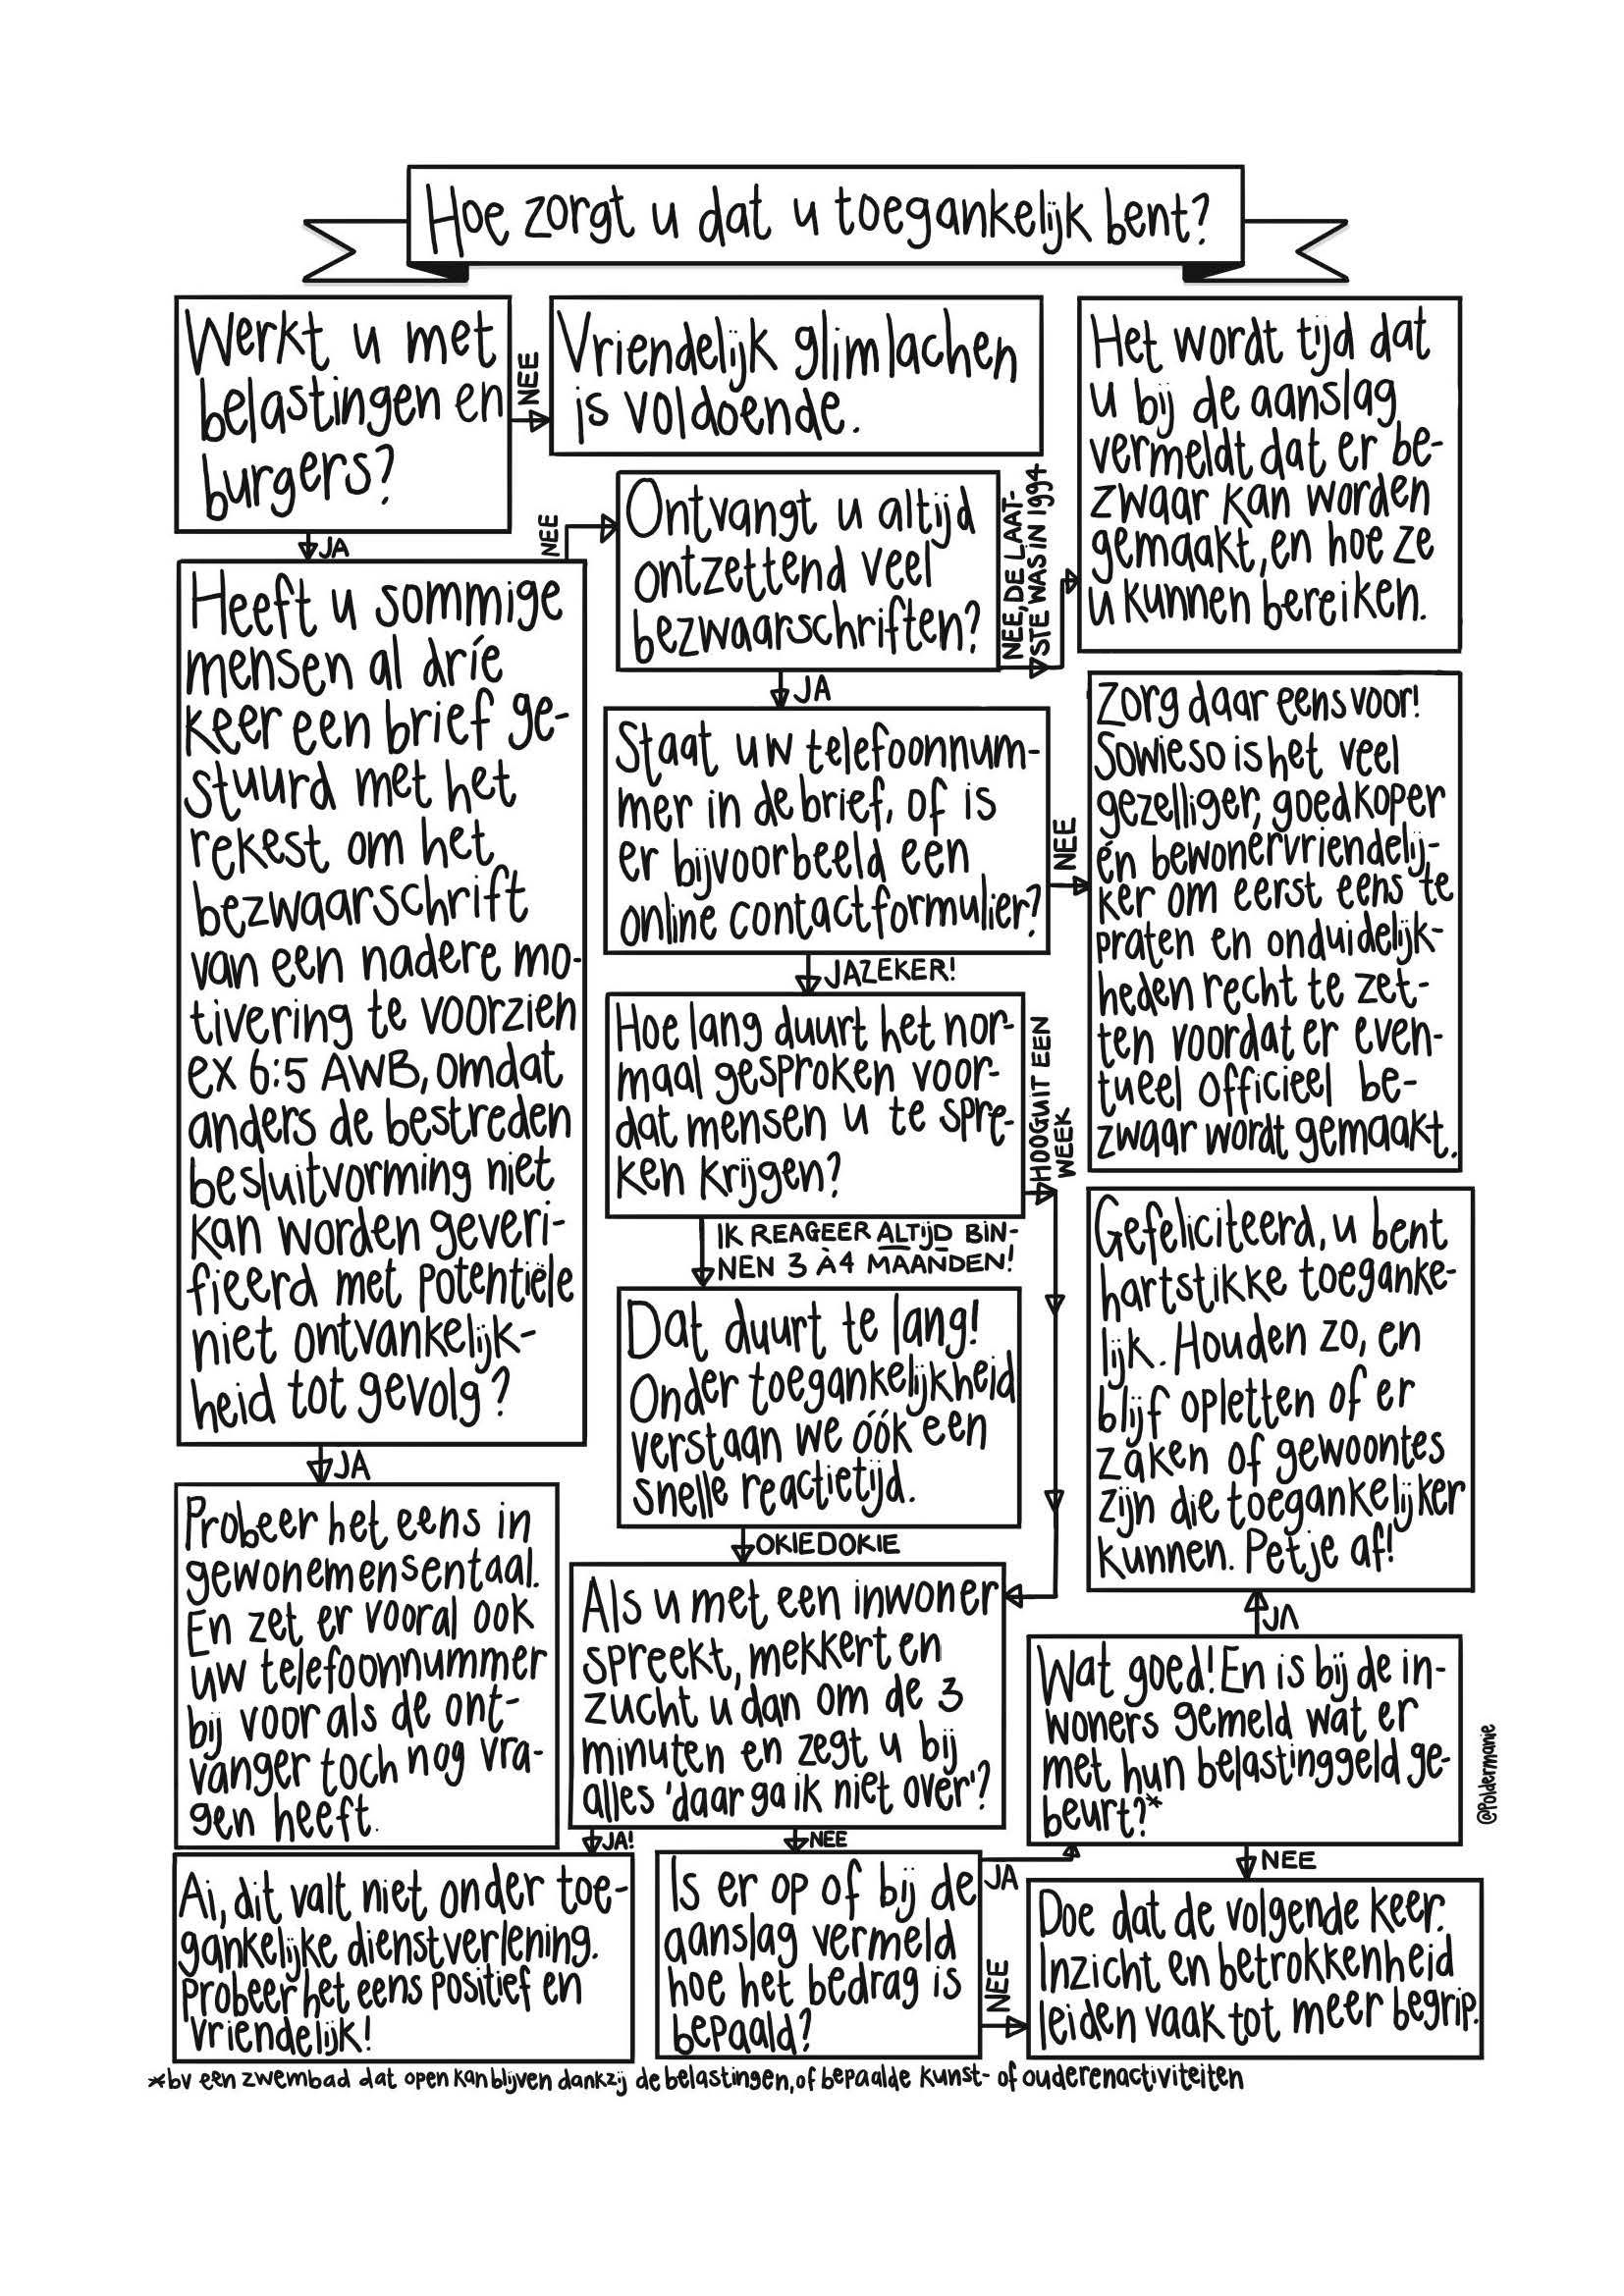 Hoe zorgt u dat u toegankelijk bent?
Werkt u met
belastingen en
burgers?
NEE
Vriendelijk glimlachen
is voldoende.
JA
Heeft u sommige
mensen al dríe
keer een brief ge-
stuurd met het
rekest om het
bezwaarschrift
van een nadere mo-
tivering te voorzien
ex 6:5 AWB, omdat
anders de bestreden
besluitvorming niet
kan worden geveri-
fieerd met potentiële
niet ontvankelijk-
heid tot gevolg?
NEE
Ontvangt u altijd
ontzettend veel
bezwaarschriften?
NEE, DE LAAT-
STE WAS IN 1994
Het wordt tijd dat
u bij de aanslag
vermeldt dat er be-
zwaar kan worden
gemaakt, en hoe ze
u kunnen bereiken.
JA
Staat uw telefoonnum-
mer in de brief, of is
er bijvoorbeeld een
online contactformulier?
NEE
Zorg daar eens voor!
Sowieso is het veel
gezelliger, goedkoper
én bewonervriendelij-
ker om eerst eens te
praten en onduidelijk-
heden recht te zet-
ten voordat er even-
tueel officieel be-
zwaar wordt gemaakt.
JAZEKER!
Hoe lang duurt het nor-
maal gesproken voor-
dat mensen u te spre-
ken krijgen?
HOOGUIT EEN
WEEK
IK REAGEER ALTIJD BIN-
NEN 3 À 4 MAANDEN!
Dat duurt te lang!
Onder toegankelijkheid
verstaan we óók een
snelle reactietijd.
OKIEDOKIE
JA
Probeer het eens in
gewonemensentaal.
En zet er vooral ook
uw telefoonnummer
bij voor als de ont-
vanger toch nog vra-
gen heeft.
Als u met een inwoner
spreekt, mekkert en
zucht u dan om de 3
minuten en zegt u bij
alles 'daar ga ik niet over'?
JA!
Ai, dit valt niet onder toe-
gankelijke dienstverlening.
Probeer het eens positief en
vriendelijk!
NEE
Is er op of bij de
aanslag vermeld
hoe het bedrag is
bepaald?
JA
NEE
Wat goed! En is bij de in-
woners gemeld wat er
met hun belastinggeld ge-
beurt?*
JA
Gefeliciteerd, u bent
hartstikke toeganke-
lijk. Houden zo, en
blijf opletten of er
zaken of gewoontes
zijn die toegankelijker
kunnen. Petje af!
NEE
Doe dat de volgende keer.
Inzicht en betrokkenheid
leiden vaak tot meer begrip.
@Poldermanie
*bv een zwembad dat open kan blijven dankzij de belastingen, of bepaalde kunst- of ouderenactiviteiten